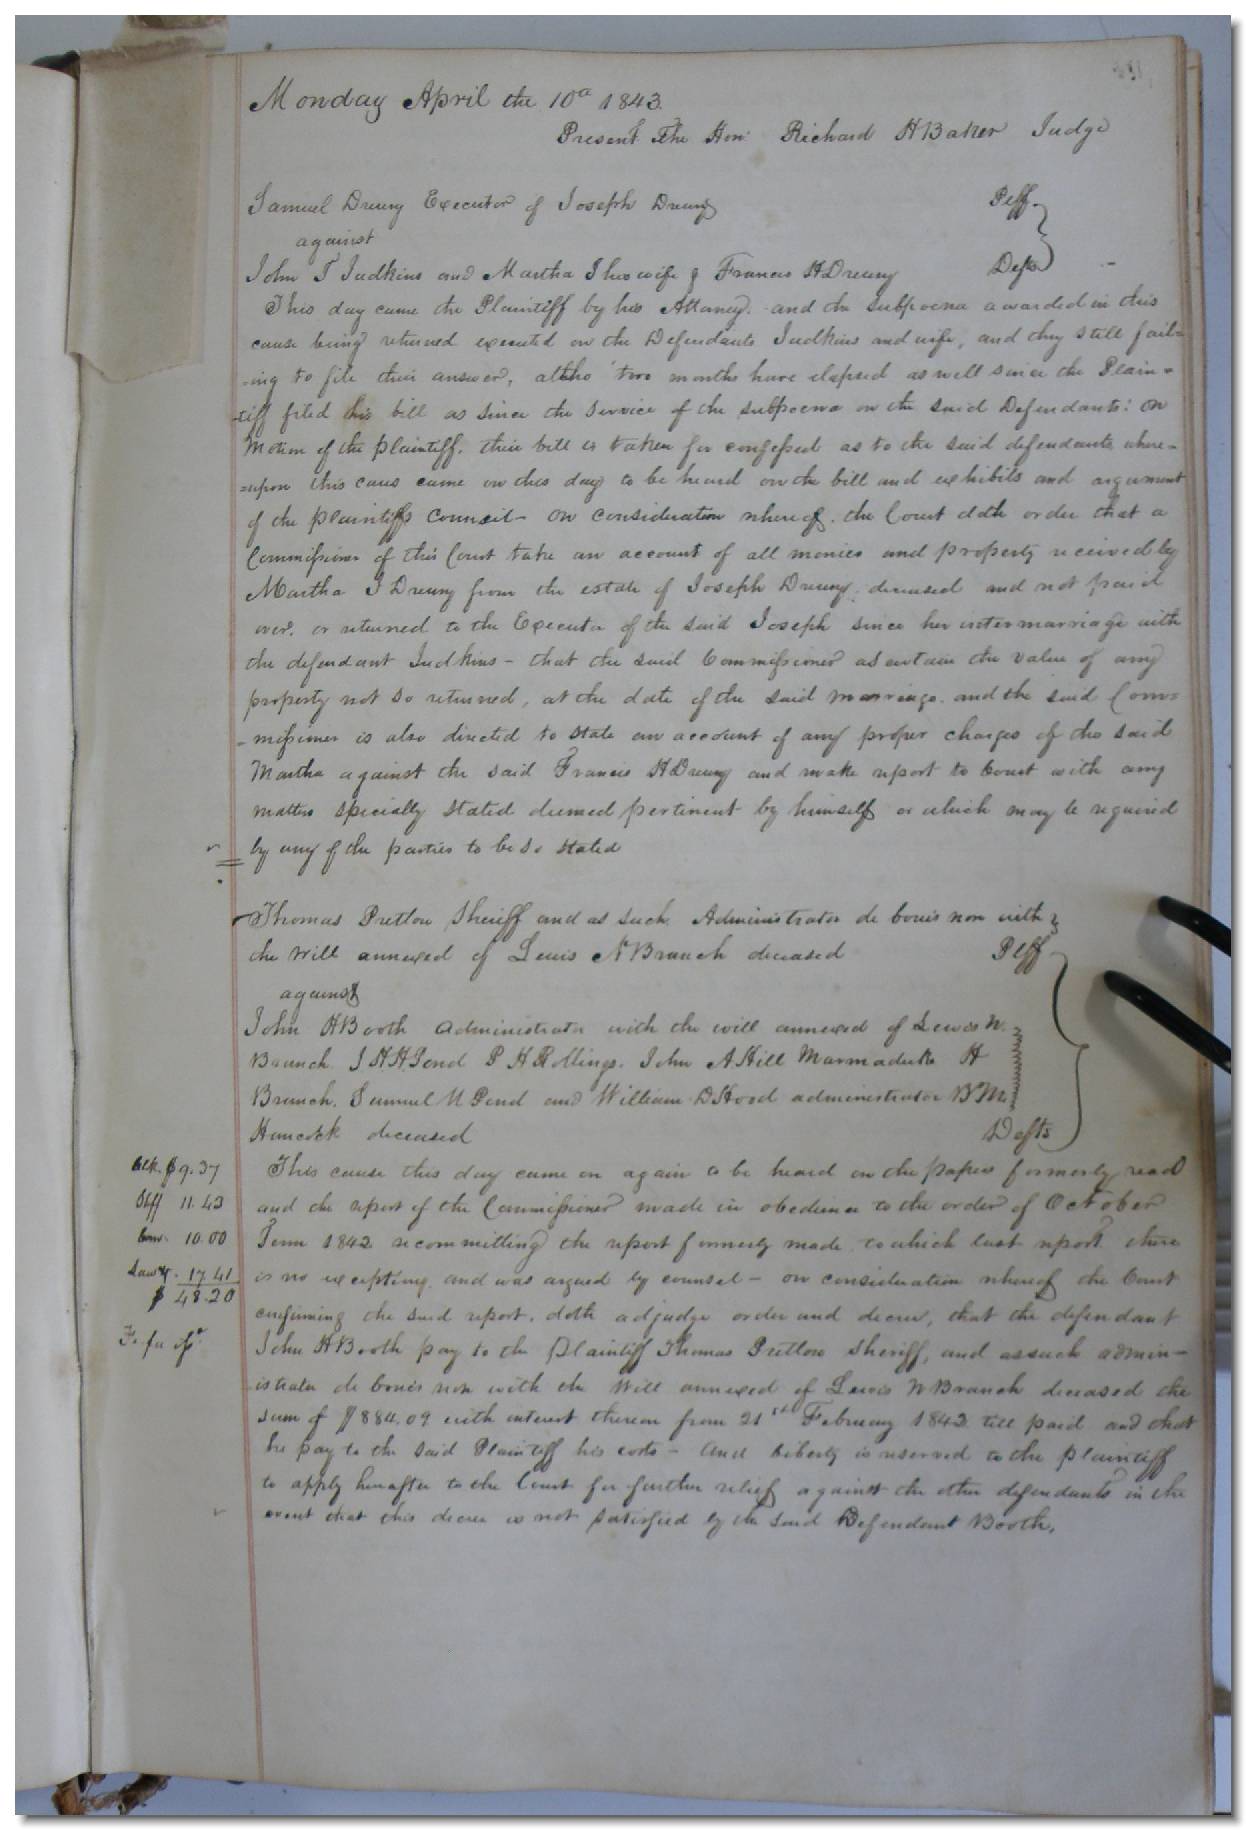 Monday April the 10th 1843.
Present The Hon: Richard H Baker Judge
Samuel Drewry Executor of Joseph Drewry Plff.
against
John T Judkins and Martha I his wife & Francis H Drewry Defts
This day came the Plaintiff by his Attorney. and the subpoena awarded in this
cause being returned executed on the Defendants Judkins and wife, and they still fail=
-ing to file their answer, altho' two months have elapsed as well since the Plain=
-tiff filed his bill as since the service of the subpoena on the said Defendants: On
Motion of the plaintiff. their bill is taken for confessed as to the said defendants where-
=upon this caus came on this day to be heard on the bill and exhibits and argument
of the plaintiffs Council - On consideration whereof. the Court doth order that a
Commissioner of this Court take an account of all monies and property received by
Martha I Drewry from the estate of Joseph Drewry, deceased and not paid
over. or returned to the Executor of the said Joseph since her intermarriage with
the defendant Judkins - that the said Commissioner ascertain the value of any
property not so returned, at the date of the said marriage. and the said Com=
-missioner is also directed to state an account of any proper charges of the said
Martha against the said Francis H Drewry and make report to Court with any
matters specially stated deemed pertinent by himself or which may be required
by any of the parties to be so stated
Thomas Pretlow Sheriff and as such Administrator de bonis non with
the will annexed of Lewis N Branch deceased Plff
against
John H Booth Administrator with the will annexed of Lewis N.
Branch. J H H Gend P H Rollings. John A Hill Marmaduke H
Branch. Samuel M Gend and William D Hood administrator B M.
Hancock deceased Defts
Clk. $9.37
Shff 11.43
Com. 10.00
Lawy. 17.41
$ 48.20
Fi. fa
This cause this day came on again to be heard on the papers formerly read
and the report of the Commissioner made in obedience to the order of October
Term 1842 recommitting the report formerly made. to which last report there
is no exceptions. and was argued by counsel - on consideration whereof the Court
confirming the said report. doth adjudge order and decree, that the defendant
John H Booth pay to the Plaintiff Thomas Pretlow Sheriff, and as such admin-
istrator de bonis non with the Will annexed of Lewis N Branch deceased the
sum of $884.09 with interest thereon from 21st February 1842 till paid and that
he pay to the said Plaintiff his costs - And liberty is reserved to the plaintiff
to apply hereafter to the Court for further relief against the other defendants in the
event that this decree is not satisfied by the said Defendant Booth.